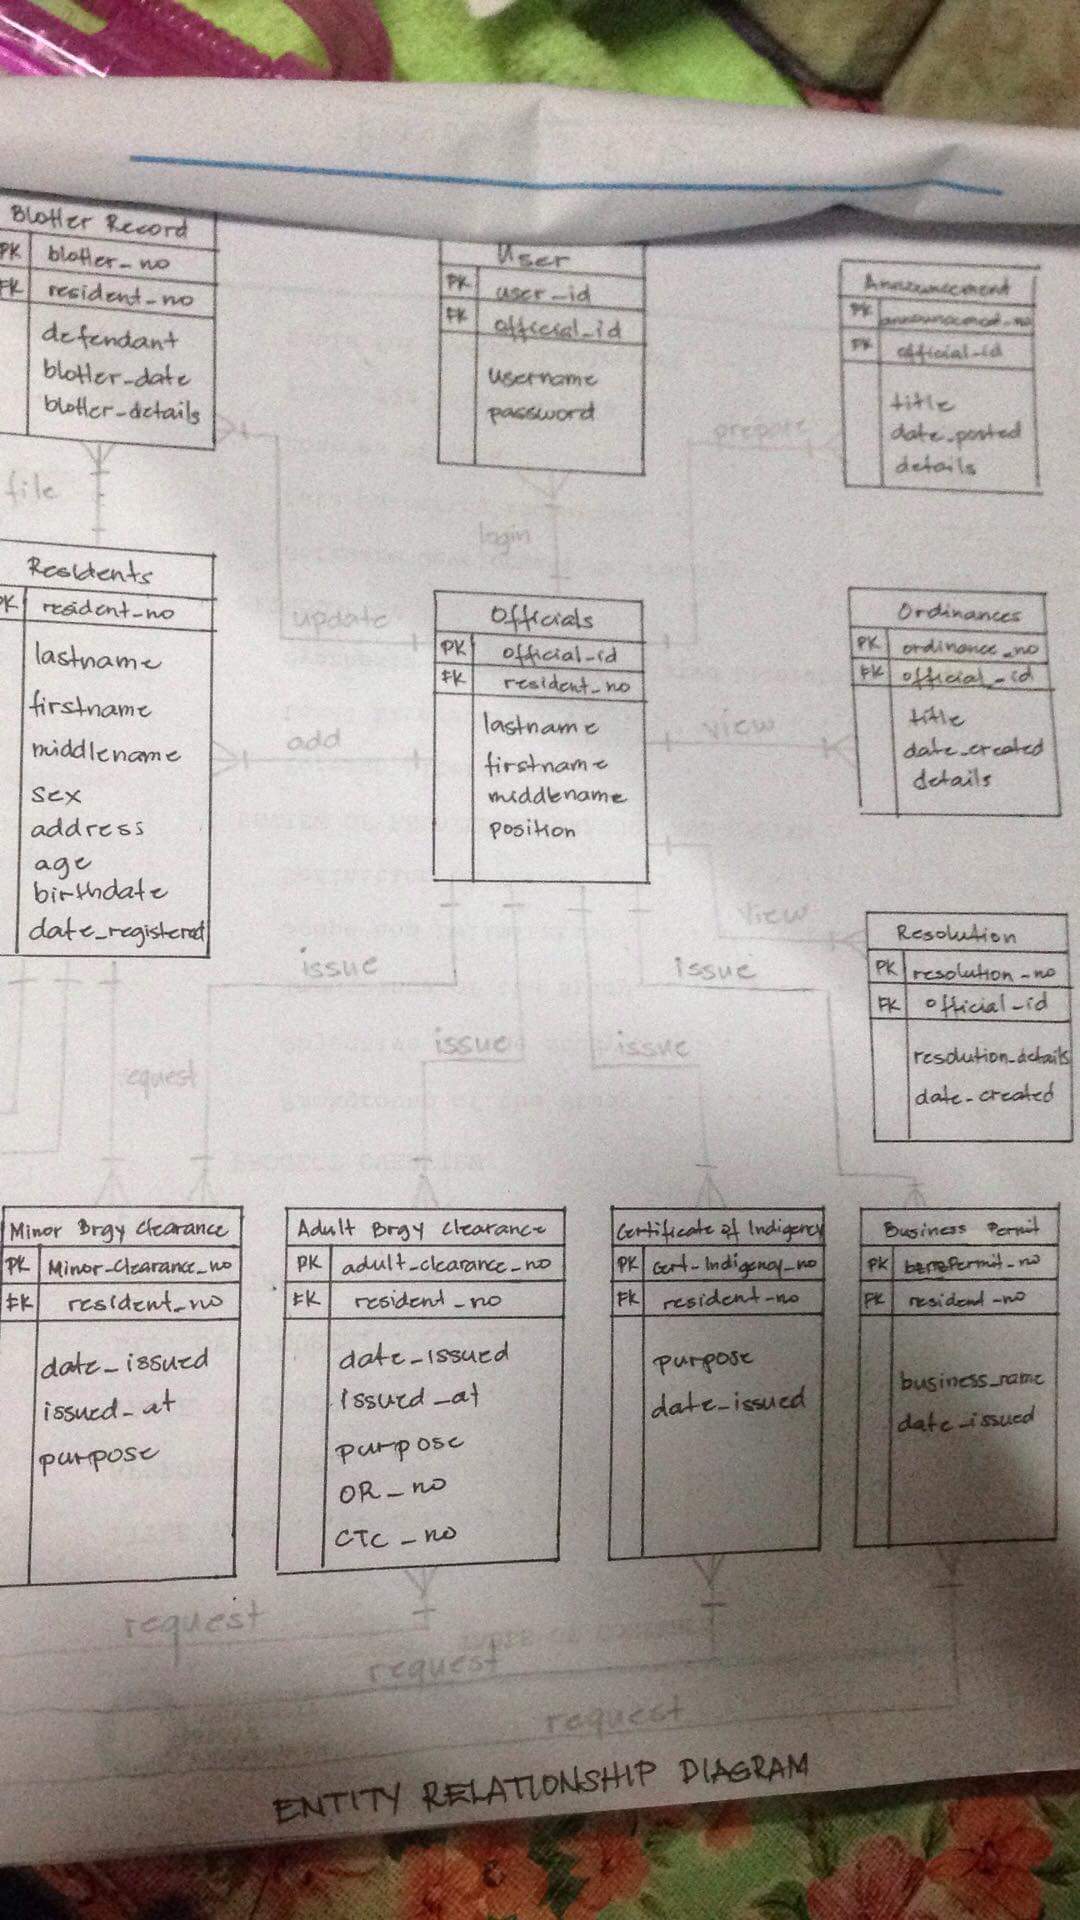 Blotter Record
PK blotter_no
FK resident_no
defendant
blotter_date
blotter_details
User
PK user_id
FK official_id
username
password
Announcement
PK announcement_no
FK official_id
title
date_posted
details
file
login
prepare
Residents
PK resident_no
lastname
firstname
middlename
sex
address
age
birthdate
date_registered
update
add
Officials
PK official_id
FK resident_no
lastname
firstname
middlename
position
view
Ordinances
PK ordinance_no
FK official_id
title
date_created
details
view
Resolution
PK resolution_no
FK official_id
resolution_details
date_created
issue
issue
issue
issue
request
Minor Brgy Clearance
PK Minor_Clearance_no
FK resident_no
date_issued
issued_at
purpose
Adult Brgy Clearance
PK adult_clearance_no
FK resident_no
date_issued
issued_at
purpose
OR_no
CTC_no
Certificate of Indigency
PK Cert_Indigency_no
FK resident_no
purpose
date_issued
Business Permit
PK Permit_no
FK resident_no
business_name
date_issued
request
request
request
ENTITY RELATIONSHIP DIAGRAM